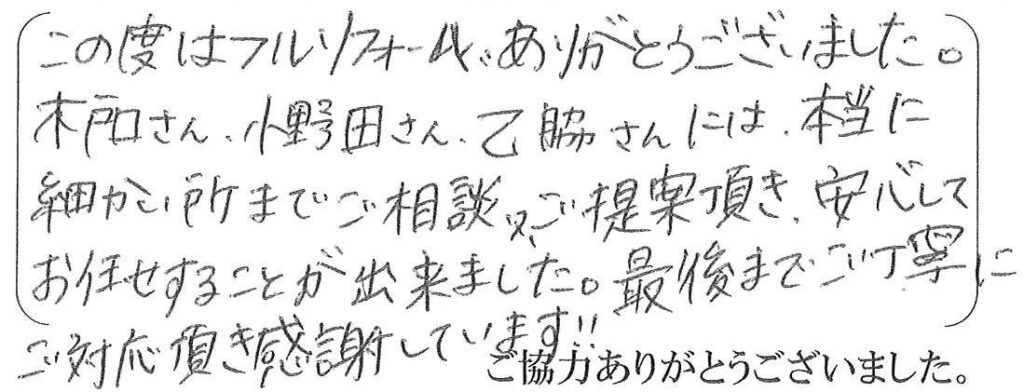 この度はフルリフォーム、ありがとうございました。
木戸口さん、小野田さん、乙脇さんには、本当に
細かい所までご相談又、ご提案頂き、安心して
お任せすることが出来ました。最後までご丁寧に
ご対応頂き感謝しています!!
ご協力ありがとうございました。